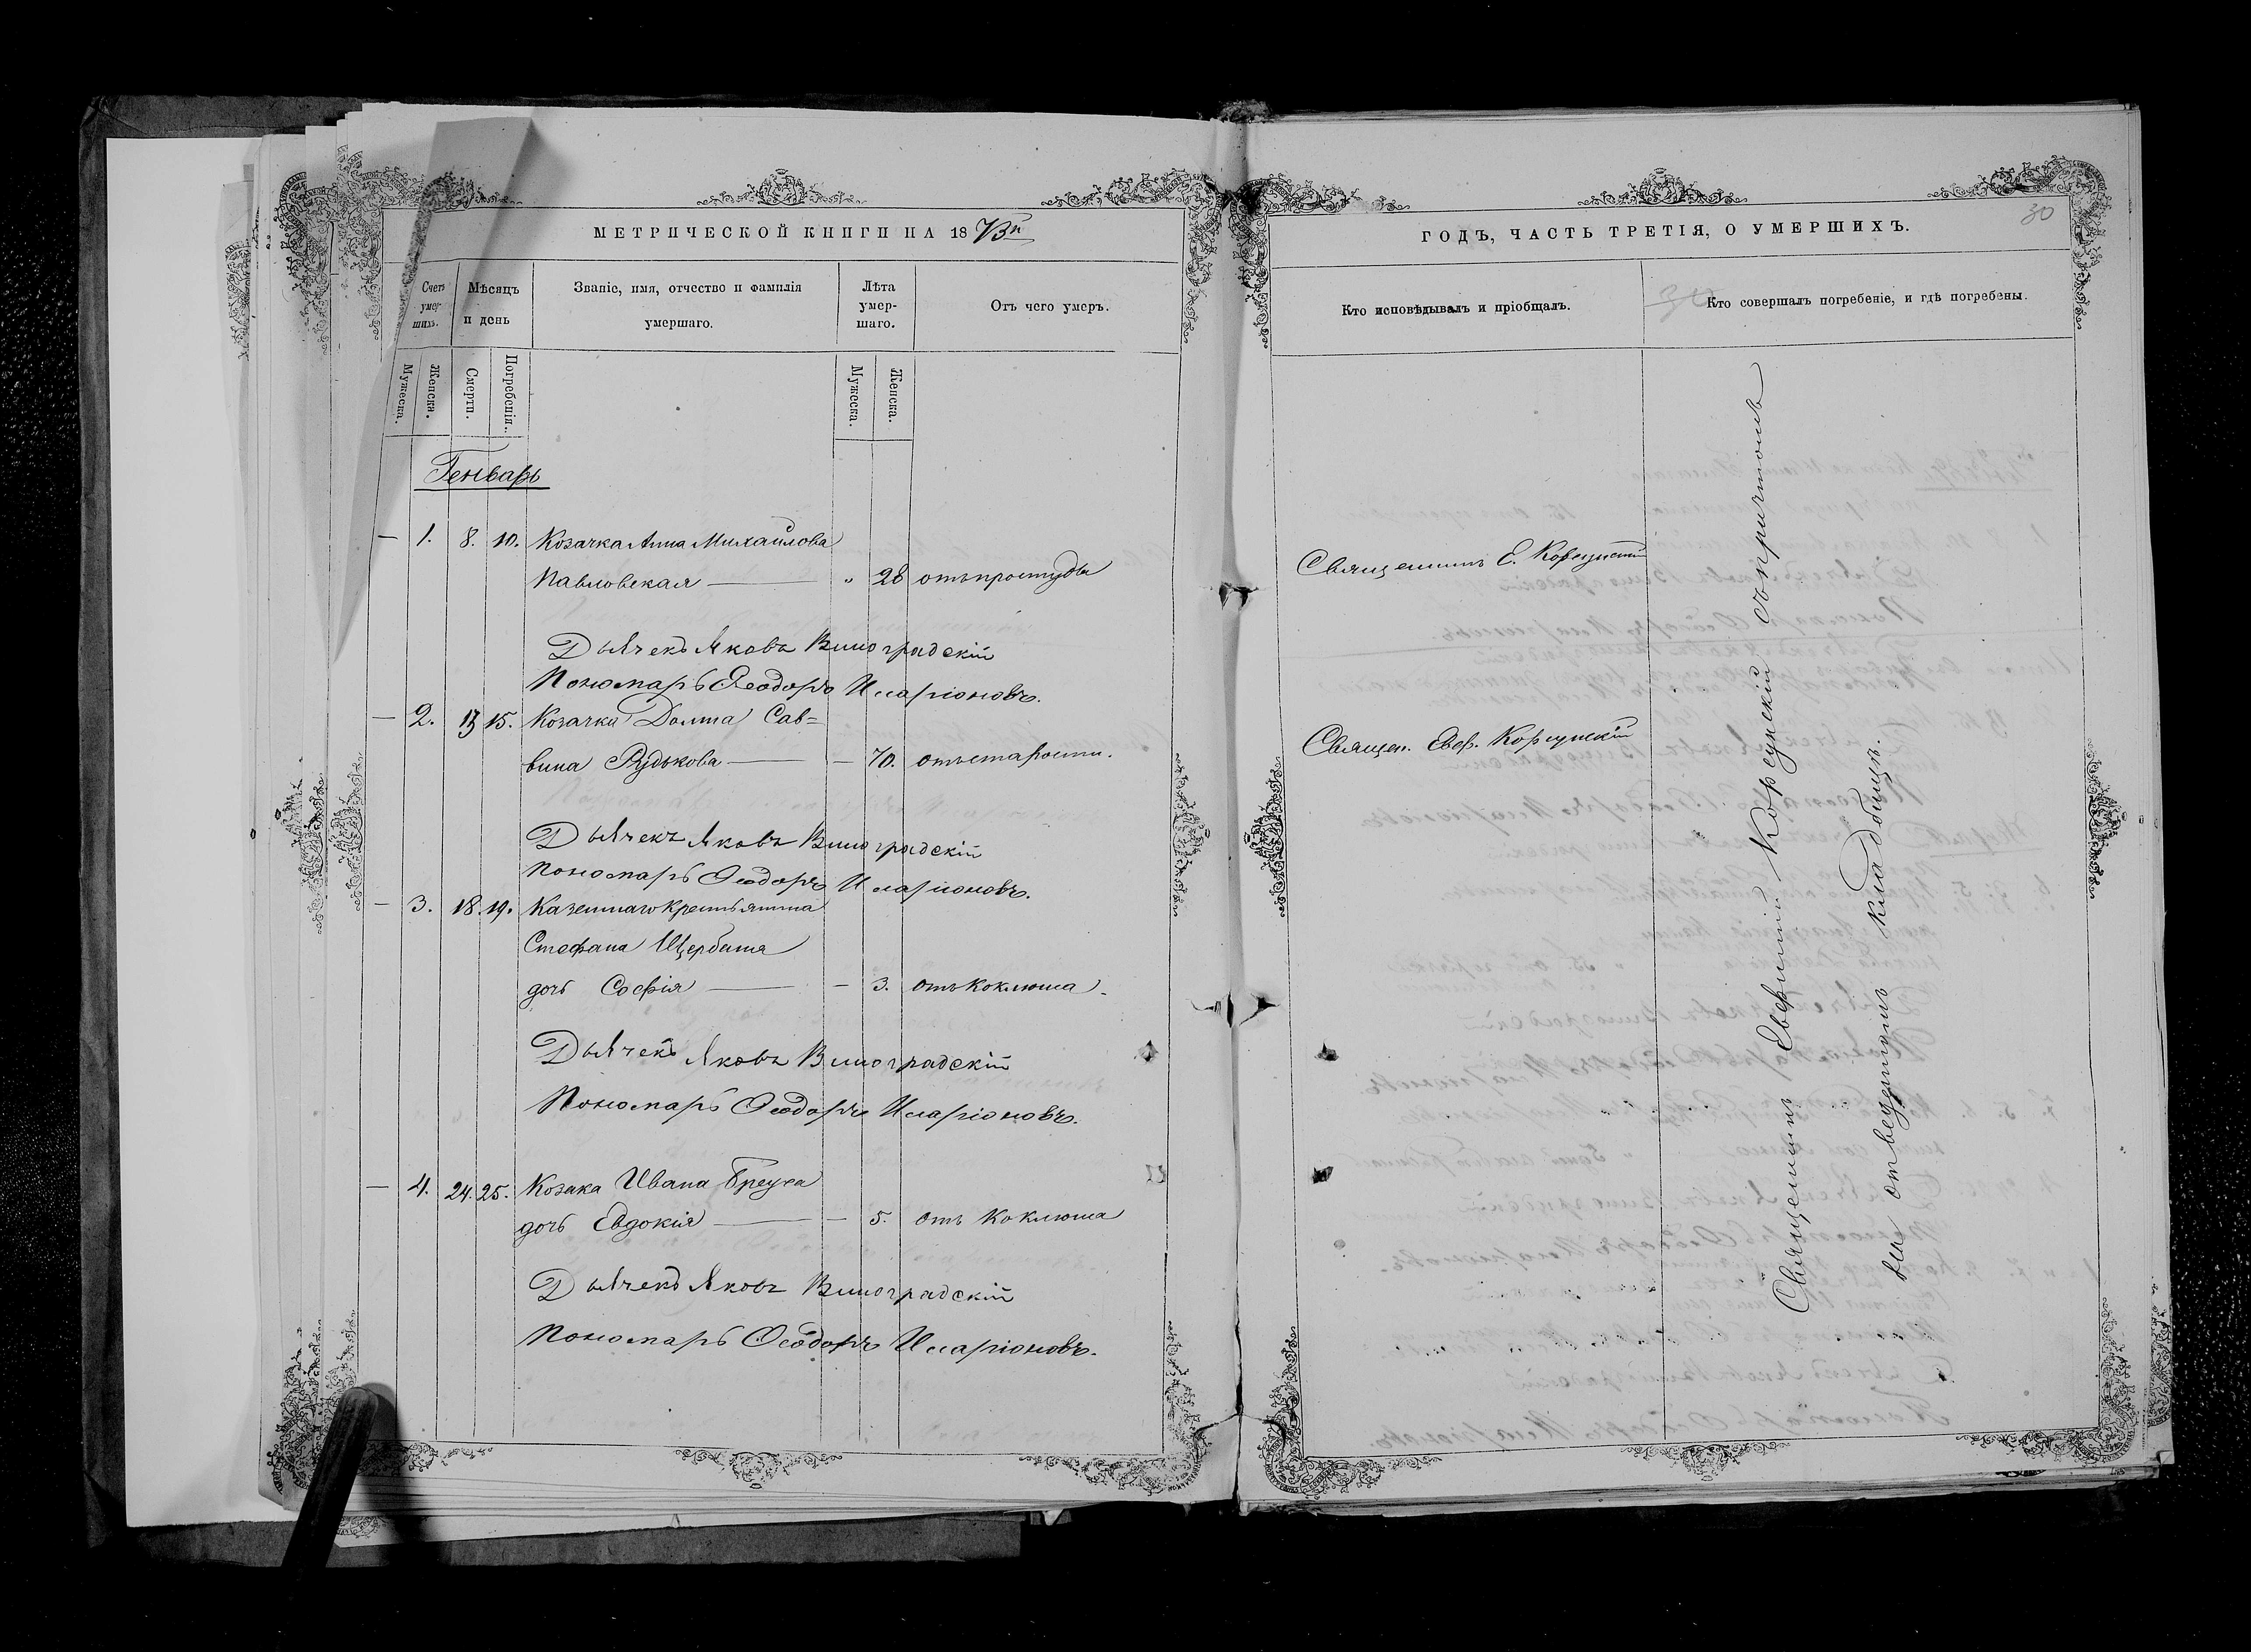 МЕТРИЧЕСКОЙ КНИГИ НА 1873й
Счетъ умершихъ.
Мѣсяцъ и день
Званіе, имя, отчество и фамилія умершаго.
Лѣта умершаго.
Отъ чего умеръ.
Мужеска.
Женска.
Смерти.
Погребенія.
Мужеска.
Женска.
Генварь
— 1. 8. 10. Козачка Анна Михайлова
Павловская — „ 28 отъ простуды
Дьячекъ Яковъ Виноградскій
Пономарь Ѳеодоръ Иларіоновъ.
— 2. 13 15. Козачка Домна Сав=
вина Рудькова — — 70. отъ старости.
Дьячекъ Яковъ Виноградскій
Пономарь Ѳеодоръ Иларіоновъ.
— 3. 18. 19. Казеннаго крестьянина
Стефана Щербаня
дочь Софія — — 3. отъ коклюша.
Дьячекъ Яковъ Виноградскій
Пономарь Ѳеодоръ Иларіоновъ.
— 4. 24. 25. Козака Ивана Бреуса
дочь Евдокія — — 5. отъ коклюша
Дьячекъ Яковъ Виноградскій
Пономарь Ѳеодоръ Иларіоновъ.
30
ГОДЪ, ЧАСТЬ ТРЕТІЯ, О УМЕРШИХЪ.
Кто исповѣдывалъ и пріобщалъ.
30
Кто совершалъ погребеніе, и гдѣ погребены.
Священникъ Е. Корсунскій
Священ. Евф. Корсунскій
Священникъ Евфимій Корсунскій съ причтомъ
на отведенномъ кладбищѣ.